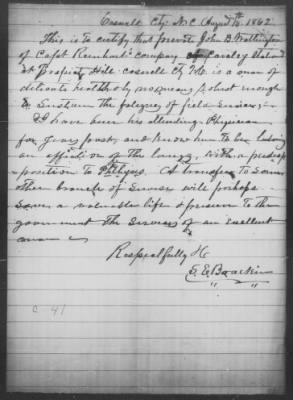 Caswell Cty. N.C. August 1862
This is to certify that private John B.
of Capt company of Cavalry
at Prospect Hill Caswell Cty NC is a man of
delicate health by no means robust enough
to sustain the fatigues of field service,
I have been his attending Physician
for years past, and know him to be laboring
an affection of the lungs, with a predis-
position to Phthysis. A transfer to some
other branch of Service will perhaps
save a valuable life & preserve to the
government the services of an excellent
man
Respectfully &c
C 41